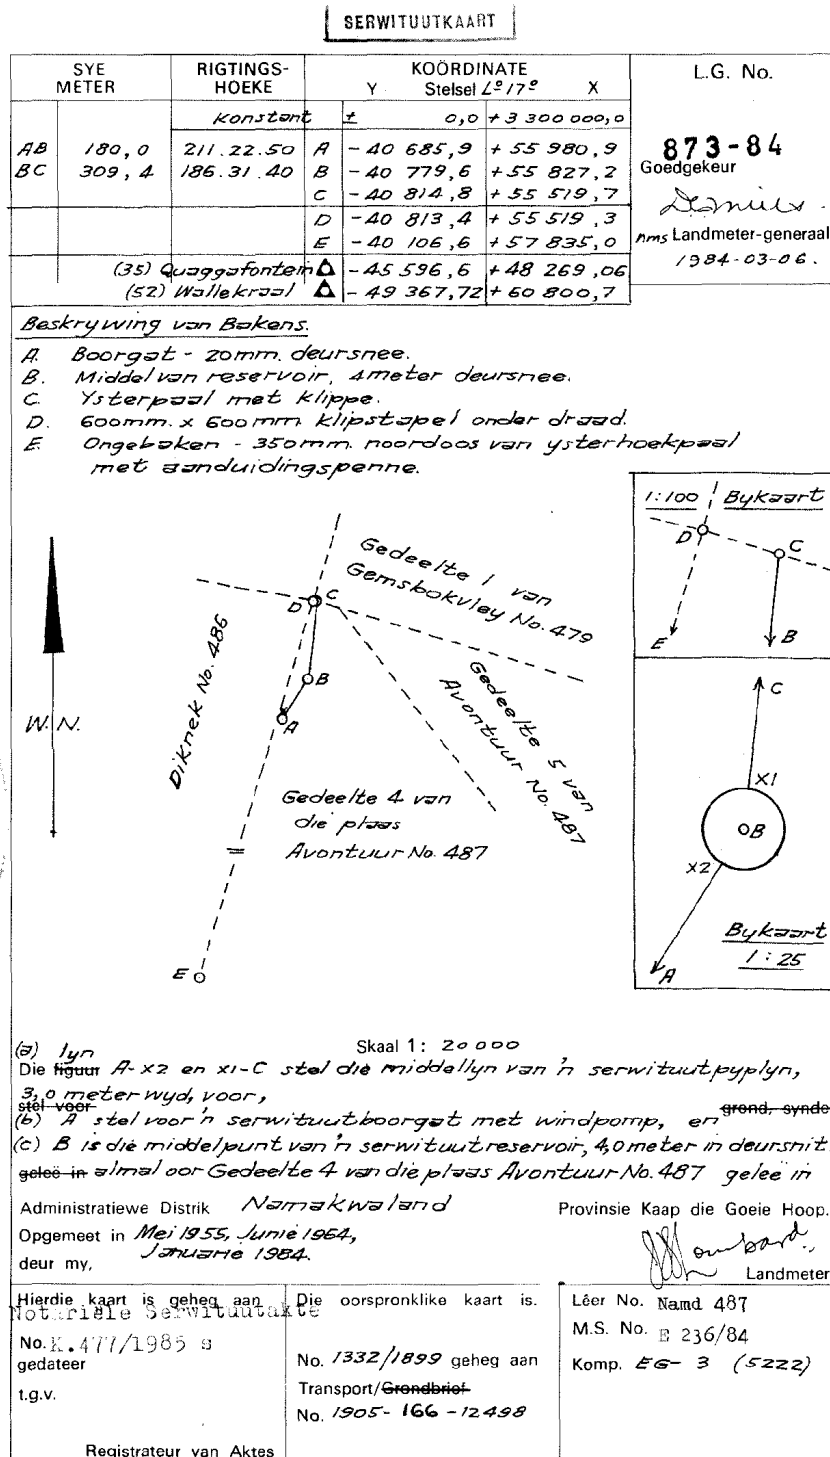 SERWITUUTKAART
SYE METER RIGTINGS-HOEKE KOÖRDINATE L.G. No.
Y Stelsel Lº17º X
Konstant ± 0,0 + 3 300 000,0
AB 180,0 211.22.50 A - 40 685,9 + 55 980,9
BC 309,4 186.31.40 B - 40 779,6 + 55 827,2
C - 40 814,8 + 55 519,7
D - 40 813,4 + 55 519,3
E - 40 106,6 + 57 835,0
(35) Quaggafontein - 45 596,6 + 48 269,06
(52) Wallekraal - 49 367,72 + 60 800,7
873-84
Goedgekeur
nms Landmeter-generaal
1984-03-06.
Beskrywing van Bakens.
A. Boorgat - 20mm. deursnee.
B. Middel van reservoir, 4meter deursnee.
C. Ysterpaal met klippe.
D. 600mm. x 600mm. klipstapel onder draad.
E. Ongebaken - 350mm. noordoos van ysterhoekpaal
met aanduidingspenne.
1:100 Bykaart
D C
E B
Gedeelte 1 van
Gemsbokvley No. 479
D C
B
A
Diknek No. 486
W. N.
Gedeelte 5 van
Avontuur No. 487
Gedeelte 4 van
die plaas
Avontuur No. 487
E
C
X1
B
X2
A
Bykaart
1 : 25
Skaal 1: 20 000
(a) lyn
Die figuur A-x2 en x1-C stel die middellyn van 'n serwituutpyplyn,
3,0 meter wyd, voor,
stel voor
(b) A stel voor 'n serwituutboorgat met windpomp, en grond, synde
(c) B is die middelpunt van 'n serwituutreservoir, 4,0 meter in deursnit.
geleë in almal oor Gedeelte 4 van die plaas Avontuur No. 487 geleë in
Administratiewe Distrik Namakwaland Provinsie Kaap die Goeie Hoop.
Opgemeet in Mei 1955, Junie 1964,
Januarie 1984.
deur my,
Landmeter
Hierdie kaart is geheg aan
Notariële Serwituutakte
No. K.477/1985 s
gedateer
t.g.v.
Registrateur van Aktes
Die oorspronklike kaart is.
No. 1332/1899 geheg aan
Transport/Grondbrief
No. 1905-166-12498
Lêer No. Namd 487
M.S. No. E 236/84
Komp. EG-3 (5222)